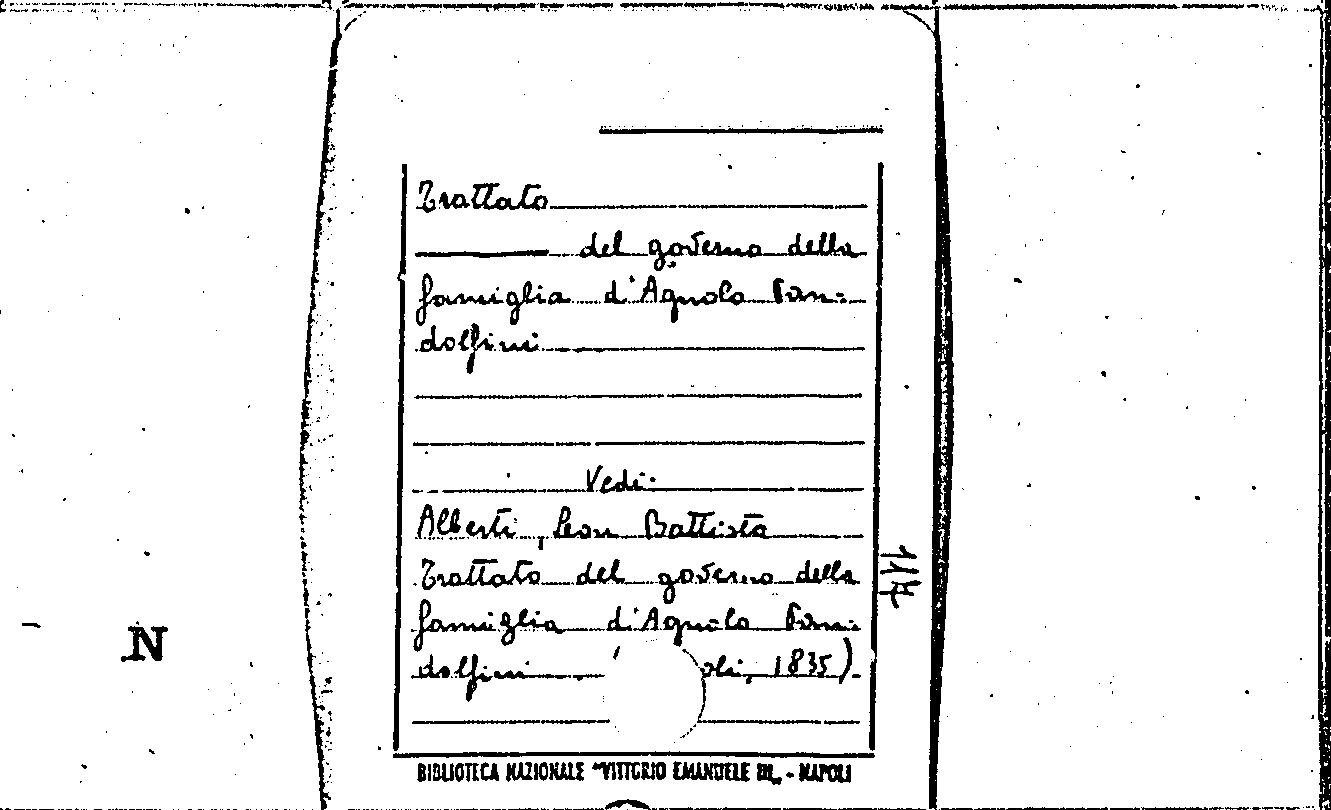 Trattato
del governo della
famiglia d'Agnolo Pan-
dolfini
Vedi:
Alberti, Leon Battista
Trattato del governo della
famiglia d'Agnolo Pan-
dolfini ( oli, 1835)
BIBLIOTECA NAZIONALE "VITTORIO EMANUELE III„ - NAPOLI
N